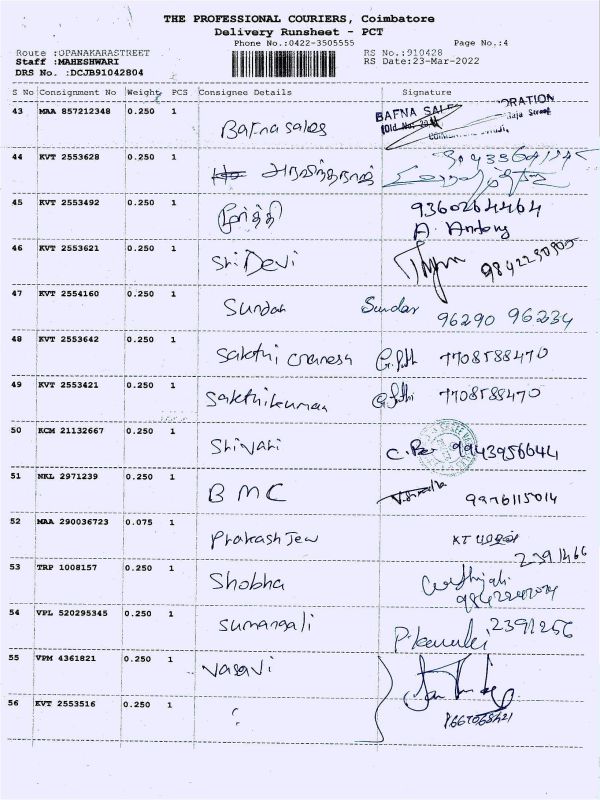 THE PROFESSIONAL COURIERS, Coimbatore
Delivery Runsheet - PCT
Phone No.:0422-3505555 Page No.:4
Route :OPANAKARASTREET RS No.:910428
Staff :MAHESHWARI RS Date:23-Mar-2022
DRS No. :DCJB91042804
S No Consignment No Weight PCS Consignee Details Signature
43 MAA 857212348 0.250 1 Bafna Sales BAFNA SALES
44 KVT 2553628 0.250 1 அரவிந்தநாஜ்
45 KVT 2553492 0.250 1 மூர்த்தி 9360264464
A. Antony
46 KVT 2553621 0.250 1 Sri Devi 9842230905
47 KVT 2554160 0.250 1 Sundar Sundar
96290 96234
48 KVT 2553642 0.250 1 Sakthi Ganesh 7708588470
49 KVT 2553421 0.250 1 Sakthikumar 7708588470
50 KCM 21132667 0.250 1 Shivani 9943956644
51 NKL 2971239 0.250 1 BMC 9976115014
52 MAA 290036723 0.075 1 Prakash Jew KT
2391466
53 TRP 1008157 0.250 1 Shobha
54 VPL 520295345 0.250 1 Sumangali 2391256
55 VPM 4361821 0.250 1 Vasavi
56 KVT 2553516 0.250 1